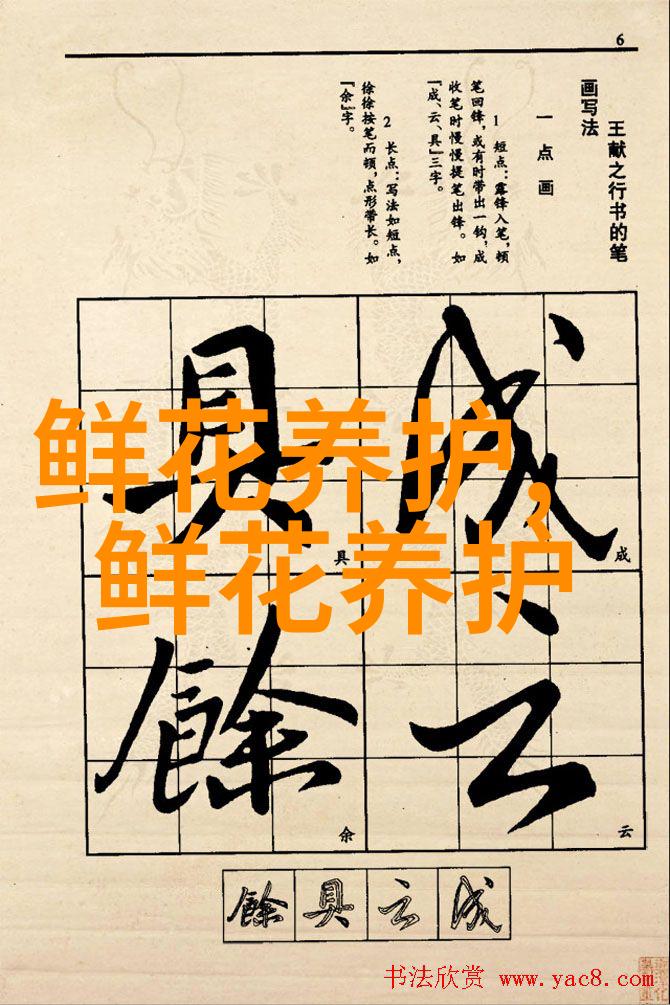 6
王献之行书的笔
画写法
一 点 画
1 短点：露锋入笔，顿
笔回锋，或有时带出一钩，成
收笔时慢慢提笔出锋。如
「成、云、具」三字。
2 长点：写法如短点，
徐徐按笔而顿，点形带长。如
「余」字。
成
具
云
餘
成
具
云
余
鲜花养护，
鲜花养护
餘 具 云 成
书法欣赏 www.yac8.com